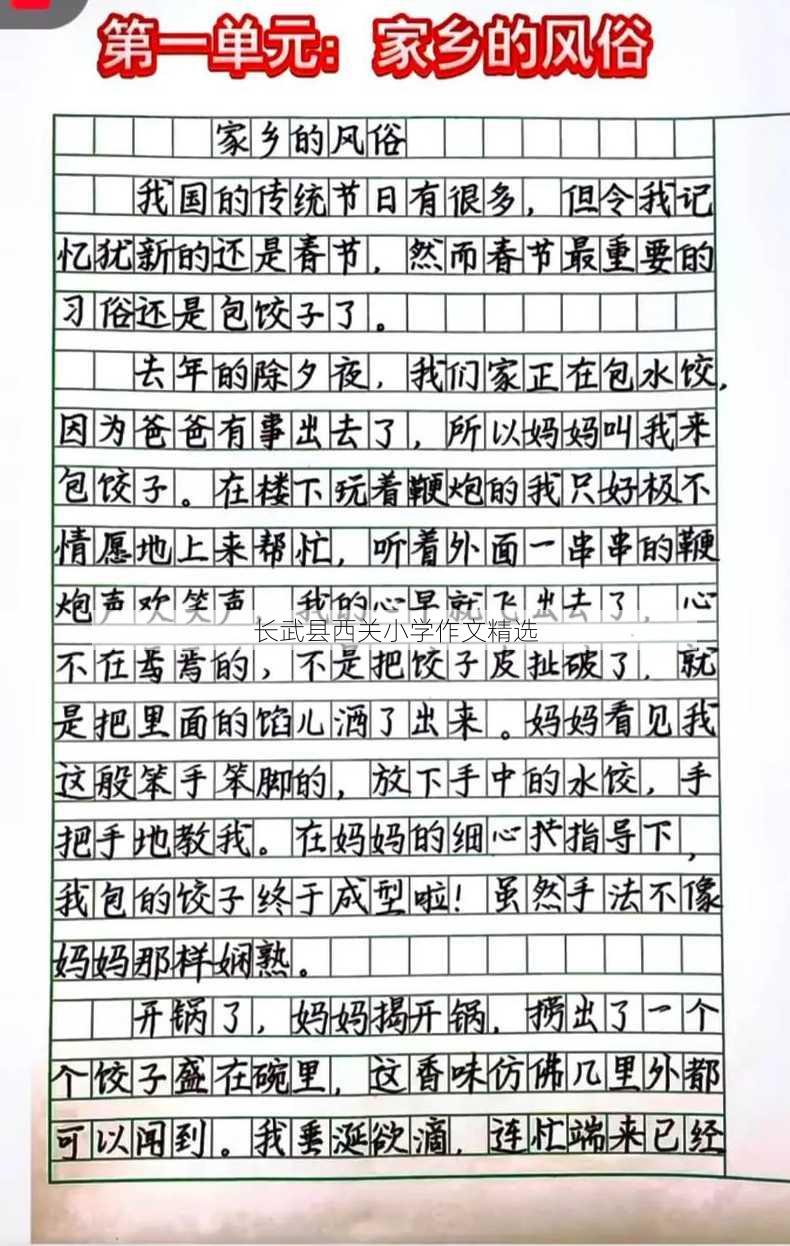 第一单元：家乡的风俗
家乡的风俗
我国的传统节日有很多，但令我记
忆犹新的还是春节，然而春节最重要的
习俗还是包饺子了。
去年的除夕夜，我们家正在包水饺，
因为爸爸有事出去了，所以妈妈叫我来
包饺子。在楼下玩着鞭炮的我只好极不
情愿地上来帮忙，听着外面一串串的鞭
炮声欢笑声，我的心早就飞出去了，心
长武县西关小学作文精选
不在焉焉的，不是把饺子皮扯破了，就
是把里面的馅儿洒了出来。妈妈看见我
这般笨手笨脚的，放下手中的水饺，手
把手地教我。在妈妈的细心指导下，
我包的饺子终于成型啦！虽然手法不像
妈妈那样娴熟。
开锅了，妈妈揭开锅，捞出了一个
个饺子盛在碗里，这香味仿佛几里外都
可以闻到。我垂涎欲滴，连忙端来已经